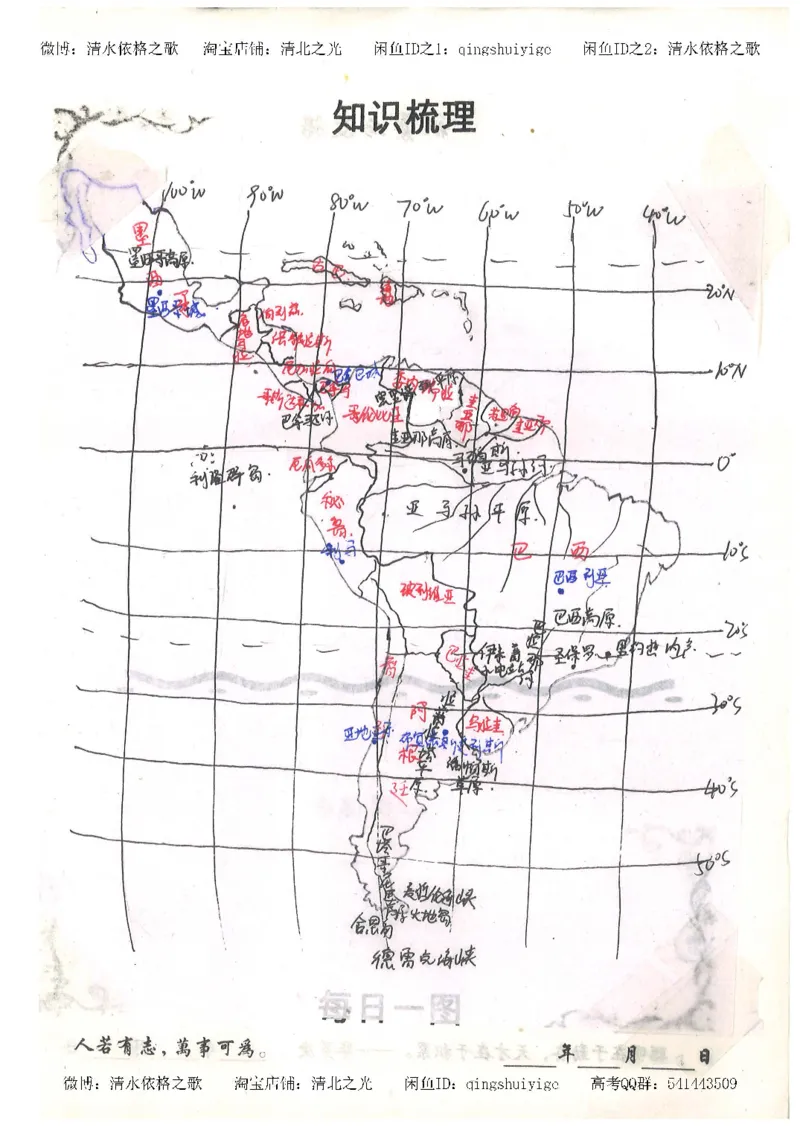 微博：清水依格之歌 淘宝店铺：清北之光 闲鱼ID之1：qingshuiyige 闲鱼ID之2：清水依格之歌
知识梳理
100°W 90°W 80°W 70°W 60°W 50°W 40°W
墨西哥
墨西哥高原
墨西哥城
古巴
海地
20°N
危地马拉
伯利兹
洪都拉斯
尼加拉瓜
10°N
巴拿马城
哥斯达黎加
巴拿马
巴拿马运河
哥伦比亚
委内瑞拉
圭亚那
苏里南
圭亚那
圭亚那高原
马瑙斯
亚马孙河
0°
厄瓜多尔
秘鲁
利马
亚马孙平原
巴西
10°S
玻利维亚
巴西利亚
巴西高原
20°S
智利
巴拉圭
伊泰普水电站
圣保罗
里约热内卢
30°S
阿根廷
乌拉圭
圣地亚哥
布宜诺斯艾利斯
潘帕斯草原
40°S
50°S
巴塔哥尼亚高原
麦哲伦海峡
火地岛
合恩角
德雷克海峡
每日一图
人若有志，萬事可為。
年 月 日
微博：清水依格之歌 淘宝店铺：清北之光 闲鱼ID：qingshuiyige 高考QQ群：541443509